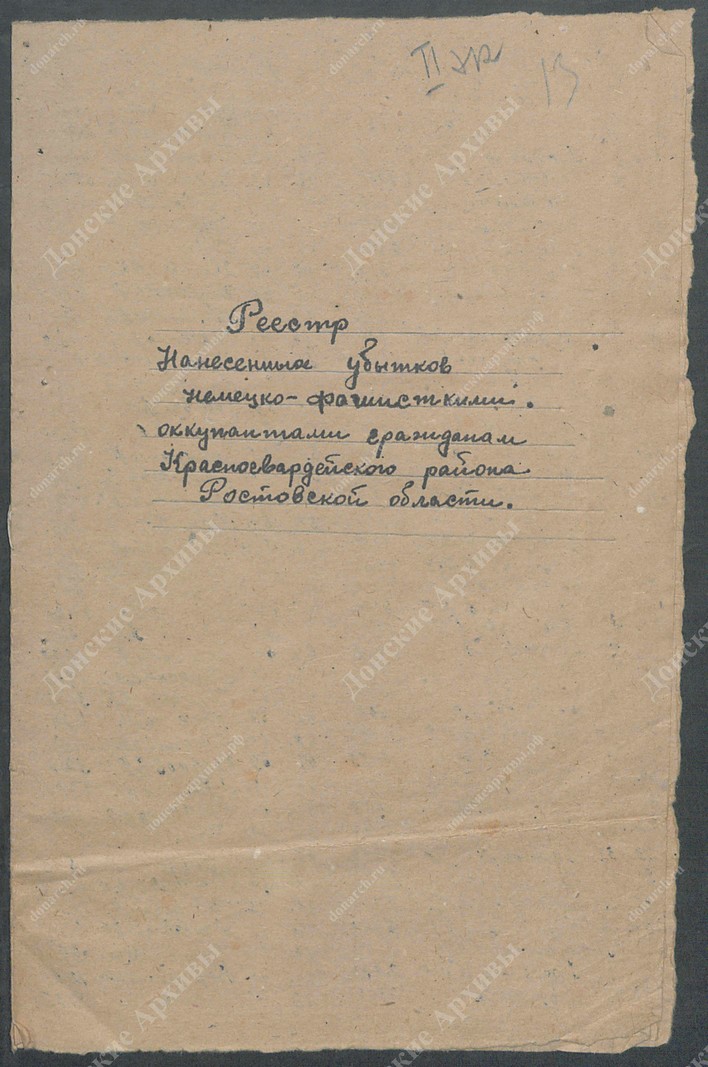 II эк 13
Реестр
Нанесенных убытков
немецко-фашисткими.
оккупантами гражданам
Красногвардейского района
Ростовской области.
Донские Архивы
donarch.ru
донскиеархивы.рф